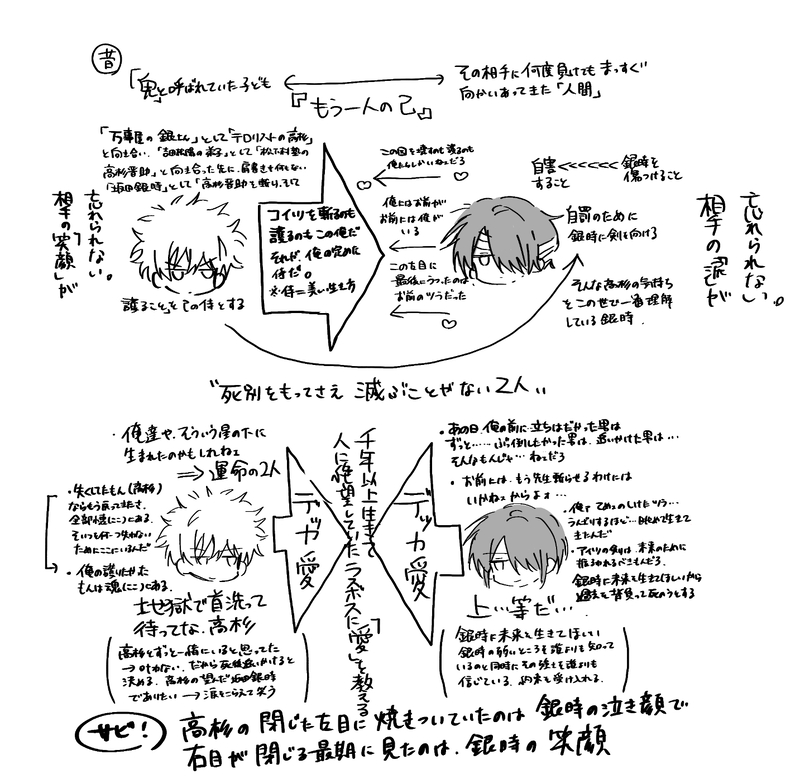 昔
「鬼」と呼ばれていた子ども
その相手に何度負けてもまっすぐ
向かいあってきた「人間」
『もう一人の己』
「万事屋の銀さん」として「テロリストの高杉」
と向き合い、「吉田松陽の弟子」として「松下村塾の
高杉晋助」と向き合った先に、肩書きも何もない
「坂田銀時」として「高杉晋助を斬り、そして
忘れられない。
相手の「笑顔」が
護ること」をこの侍とする
コイツを斬るのも
護るのもこの俺だ
それが、俺の定めた
侍だ。
※侍=美しい生き方
この国を壊すのも護るのも
俺たちしかいねぇだろ
俺にはお前が
お前には俺が
いる
この左目に
最後にうつったのは、
お前のツラだった
自害<<<<<<銀時を
すること 傷つけること
自罰のために
銀時に剣を向ける
そんな高杉の気持ち
をこの世で一番理解
している銀時.
忘れられない。
相手の「涙」が
"死別をもってさえ 滅ぶことがない2人"
・俺達や、そういう星の下に
生まれたのかもしれねぇ
⇒ 運命の2人
・失くしたもん(高杉)
ならもう戻ってきたさ、
全部懐(ここ)にある.
そいつを何一つ失わない
ためにここにいるんだ
・俺の護りたかった
もんは魂(ここ)にある.
地獄で首洗って
待ってな、高杉
高杉とずっと一緒にいると思ってた
→叶わない.だから死後追いかけると
決める.高杉の望んだ坂田銀時
でありたい→涙をこらえて笑う
デッカ愛
千年以上生きて
人に絶望していたラスボスに「愛」を教える
デッカ愛
・あの日、俺の前に立ちはだかった男は
ずっと……ぶっ倒したかった男は、追いかけた男は…
そんなもんじゃ…ねぇだろ
・お前には、もう先生斬らせるわけには
いかねぇからよォ…
・俺は てめェのしけたツラ…
うんざりするほど…眺めて生きて
きたんだ
・アイツの剣は、未来のために
振るわれるべきもんだろ.
銀時に未来を生きてほしいから
過去を背負って死のうとする
上等だ…
銀時に未来を生きてほしい
銀時の弱いところを誰よりも知って
いるのと同時にその強さを誰よりも
信じている.約束を受け入れる.
サビ!
高杉の閉じた左目に焼きついていたのは 銀時の泣き顔で
右目が閉じる最期に見たのは、銀時の 笑顔